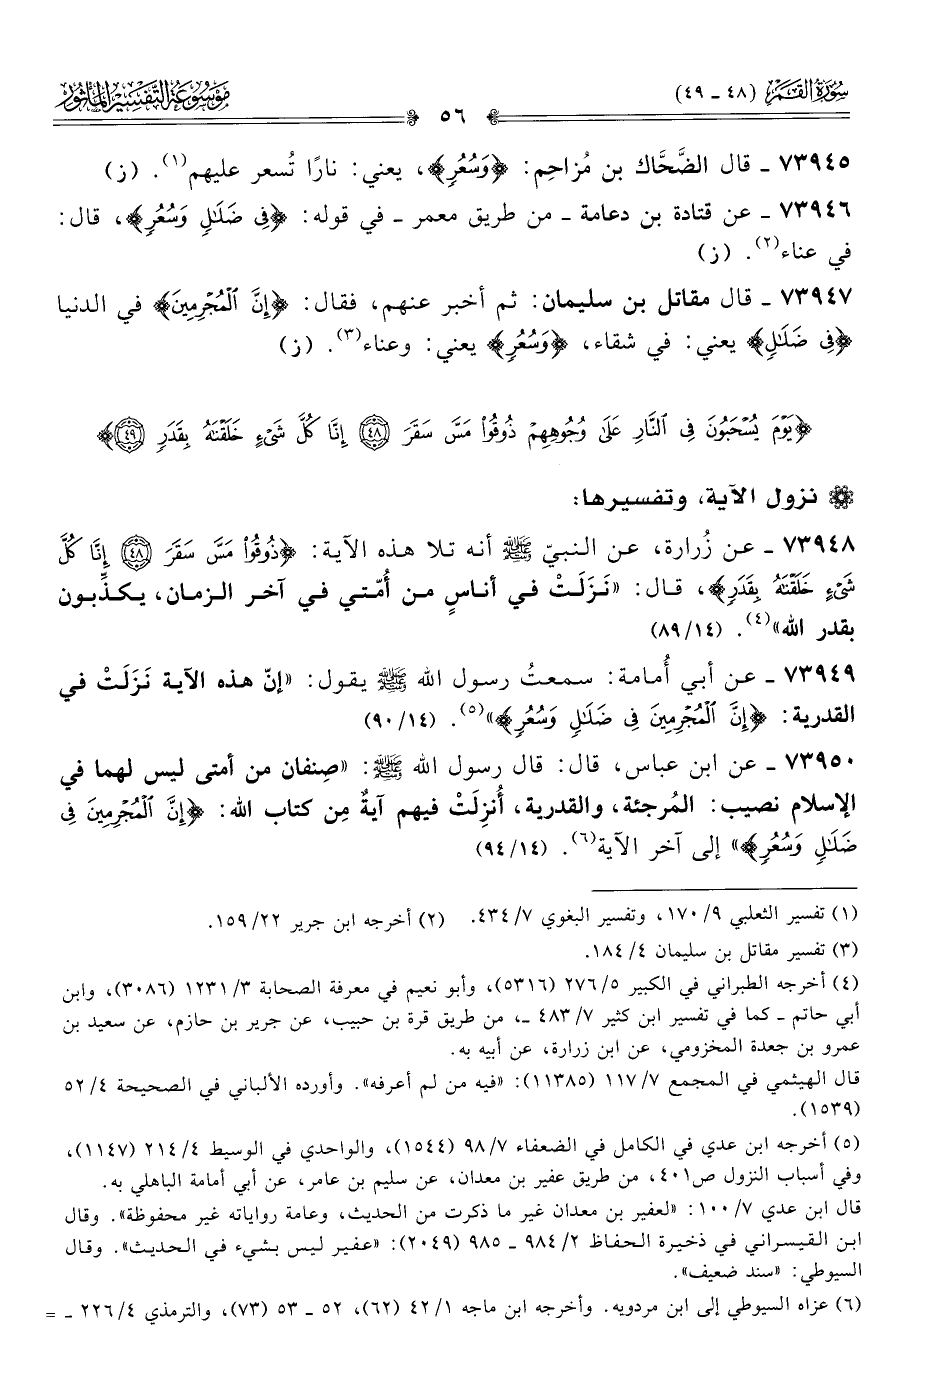 سُورَةُ القَمَر (٤٨ - ٤٩)
٥٦
مَوْسُوعَةُ التَّفْسِيرِ المَأْثُور
٧٣٩٤٥ - قال الضَّحَّاك بن مُزاحِم: ﴿وَسُعُرٍ﴾، يعني: نارًا تُسعر عليهم(١). (ز)
٧٣٩٤٦ - عن قتادة بن دعامة - من طريق معمر - في قوله: ﴿فِى ضَلَٰلٍ وَسُعُرٍ﴾، قال:
في عناء(٢). (ز)
٧٣٩٤٧ - قال مقاتل بن سليمان: ثم أخبر عنهم، فقال: ﴿إِنَّ ٱلْمُجْرِمِينَ﴾ في الدنيا
﴿فِى ضَلَٰلٍ﴾ يعني: في شقاء، ﴿وَسُعُرٍ﴾ يعني: وعناء(٣). (ز)
﴿يَوْمَ يُسْحَبُونَ فِى ٱلنَّارِ عَلَىٰ وُجُوهِهِمْ ذُوقُوا۟ مَسَّ سَقَرَ ٤٨ إِنَّا كُلَّ شَىْءٍ خَلَقْنَٰهُ بِقَدَرٍ ٤٩﴾
نزول الآية، وتفسيرها:
٧٣٩٤٨ - عن زُرارة، عن النبيّ ﷺ أنه تلا هذه الآية: ﴿ذُوقُوا۟ مَسَّ سَقَرَ ٤٨ إِنَّا كُلَّ
شَىْءٍ خَلَقْنَٰهُ بِقَدَرٍ﴾، قال: «نَزَلَتْ في أناسٍ من أُمّتي في آخر الزمان، يكذِّبون
بقدر الله»(٤). (١٤/ ٨٩)
٧٣٩٤٩ - عن أبي أُمامة: سمعتُ رسول الله ﷺ يقول: «إنّ هذه الآية نَزَلَتْ في
القدرية: ﴿إِنَّ ٱلْمُجْرِمِينَ فِى ضَلَٰلٍ وَسُعُرٍ﴾»(٥). (١٤/ ٩٠)
٧٣٩٥٠ - عن ابن عباس، قال: قال رسول الله ﷺ: «صِنفان من أمتى ليس لهما في
الإسلام نصيب: المُرجئة، والقدرية، أُنزِلَتْ فيهم آيةٌ مِن كتاب الله: ﴿إِنَّ ٱلْمُجْرِمِينَ فِى
ضَلَٰلٍ وَسُعُرٍ﴾» إلى آخر الآية(٦). (١٤/ ٩٤)
(١) تفسير الثعلبي ٩/ ١٧٠، وتفسير البغوي ٧/ ٤٣٤. (٢) أخرجه ابن جرير ٢٢/ ١٥٩.
(٣) تفسير مقاتل بن سليمان ٤/ ١٨٤.
(٤) أخرجه الطبراني في الكبير ٥/ ٢٧٦ (٥٣١٦)، وأبو نعيم في معرفة الصحابة ٣/ ١٢٣١ (٣٠٨٦)، وابن
أبي حاتم - كما في تفسير ابن كثير ٧/ ٤٨٣ -، من طريق قرة بن حبيب، عن جرير بن حازم، عن سعيد بن
عمرو بن جعدة المخزومي، عن ابن زرارة، عن أبيه به.
قال الهيثمي في المجمع ٧/ ١١٧ (١١٣٨٥): «فيه من لم أعرفه». وأورده الألباني في الصحيحة ٤/ ٥٢
(١٥٣٩).
(٥) أخرجه ابن عدي في الكامل في الضعفاء ٧/ ٩٨ (١٥٤٤)، والواحدي في الوسيط ٤/ ٢١٤ (١١٤٧)،
وفي أسباب النزول ص٤٠١، من طريق عفير بن معدان، عن سليم بن عامر، عن أبي أمامة الباهلي به.
قال ابن عدي ٧/ ١٠٠: «لعفير بن معدان غير ما ذكرت من الحديث، وعامة رواياته غير محفوظة». وقال
ابن القيسراني في ذخيرة الحفاظ ٢/ ٩٨٤ - ٩٨٥ (٢٠٤٩): «عفير ليس بشيء في الحديث». وقال
السيوطي: «سند ضعيف».
(٦) عزاه السيوطي إلى ابن مردويه. وأخرجه ابن ماجه ١/ ٤٢ (٦٢)، ٥٢ - ٥٣ (٧٣)، والترمذي ٤/ ٢٢٦ - =